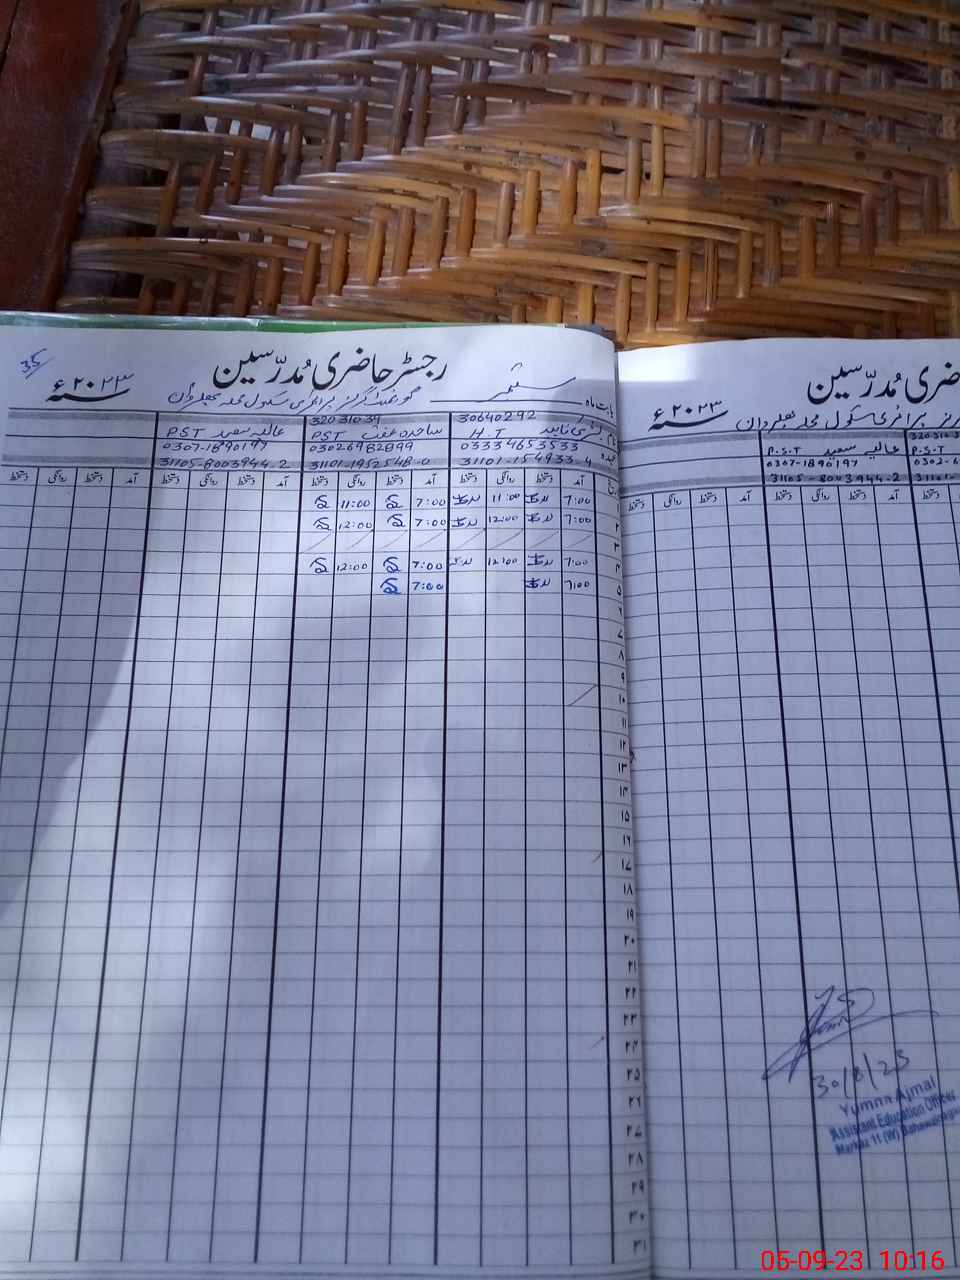 35
رجسٹر حاضری مُدرّسین
۲۰۲۳ء سنہ
بابت ماہ ستمبر
گورنمنٹ گرلز پرائمری سکول محلہ
32031039 30640292
عالیہ سعید PST ساجدہ عفت PST H.T
0307-1890197 03026982899 03334653533
31105-8003944-2 31101-1952548-0 31101-154933-4
دستخط روانگی دستخط آمد دستخط روانگی دستخط آمد دستخط روانگی دستخط آمد دستخط روانگی دستخط آمد
11:00 7:00 11:00 7:00 ۱
12:00 7:00 12:00 7:00 ۲
۳
12:00 7:00 12:00 7:00 ۴
7:00 7:00 ۵
۶
۷
۸
۹
۱۰
۱۱
۱۲
۱۳
۱۴
۱۵
۱۶
۱۷
۱۸
۱۹
۲۰
۲۱
۲۲
۲۳
۲۴
۲۵
۲۶
۲۷
۲۸
۲۹
۳۰
۳۱
حاضری مُدرّسین
۲۰۲۳ء سنہ
پرائمری سکول محلہ
P.S.T عالیہ سعید P.S.T
0307-1890197
31105-8003944-2
دستخط روانگی دستخط آمد دستخط روانگی دستخط آمد دستخط
30/8/23
Yumna Ajmal
Assistant Education Officer
Markaz 11 (W)
05-09-23 10:16